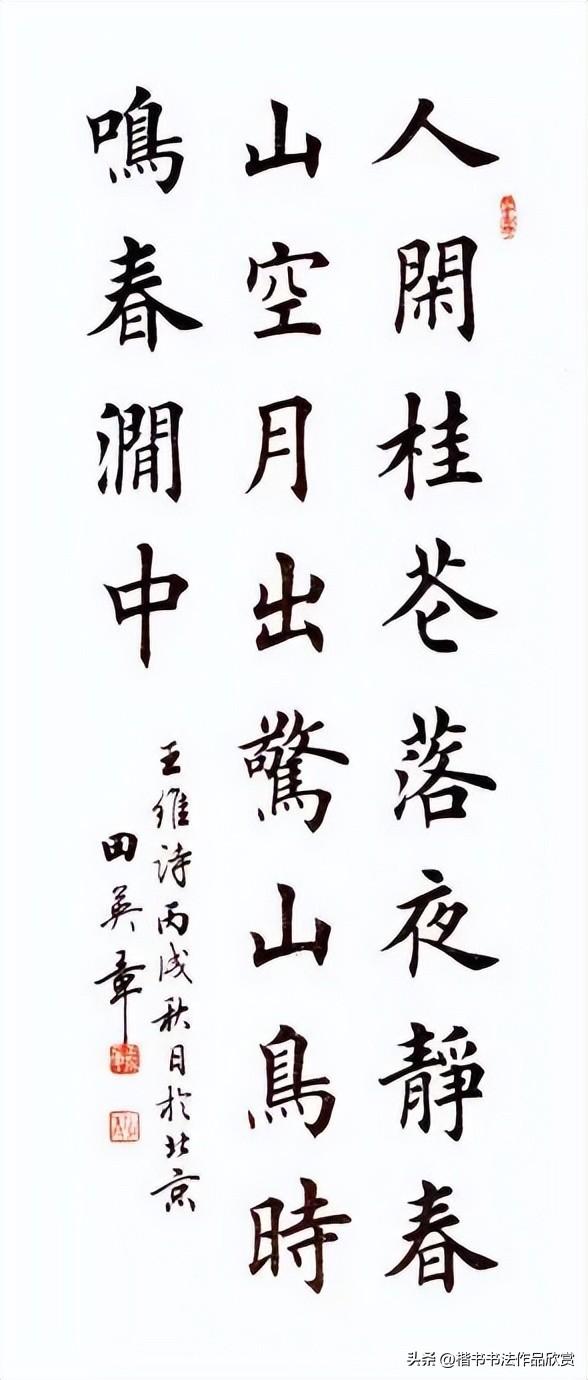 人閑桂花落夜靜春
山空月出驚山鳥時
鳴春澗中
王維诗丙戌秋日於北京
田英章
头条@楷书书法作品欣赏